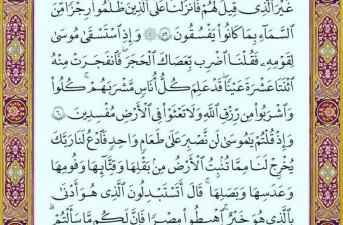 غَيْرَ ٱلَّذِى قِيلَ لَهُمْ فَأَنزَلْنَا عَلَى ٱلَّذِينَ ظَلَمُوا۟ رِجْزًا مِّنَ
ٱلسَّمَآءِ بِمَا كَانُوا۟ يَفْسُقُونَ ۝٥٩ وَإِذِ ٱسْتَسْقَىٰ مُوسَىٰ
لِقَوْمِهِۦ فَقُلْنَا ٱضْرِب بِّعَصَاكَ ٱلْحَجَرَ ۖ فَٱنفَجَرَتْ مِنْهُ
ٱثْنَتَا عَشْرَةَ عَيْنًا ۖ قَدْ عَلِمَ كُلُّ أُنَاسٍ مَّشْرَبَهُمْ ۖ كُلُوا۟
وَٱشْرَبُوا۟ مِن رِّزْقِ ٱللَّهِ وَلَا تَعْثَوْا۟ فِى ٱلْأَرْضِ مُفْسِدِينَ ۝٦٠
وَإِذْ قُلْتُمْ يَٰمُوسَىٰ لَن نَّصْبِرَ عَلَىٰ طَعَامٍ وَٰحِدٍ فَٱدْعُ لَنَا رَبَّكَ
يُخْرِجْ لَنَا مِمَّا تُنۢبِتُ ٱلْأَرْضُ مِنۢ بَقْلِهَا وَقِثَّآئِهَا وَفُومِهَا
وَعَدَسِهَا وَبَصَلِهَا ۖ قَالَ أَتَسْتَبْدِلُونَ ٱلَّذِى هُوَ أَدْنَىٰ
بِٱلَّذِى هُوَ خَيْرٌ ۚ ٱهْبِطُوا۟ مِصْرًا فَإِنَّ لَكُم مَّا سَأَلْتُمْ ۗ